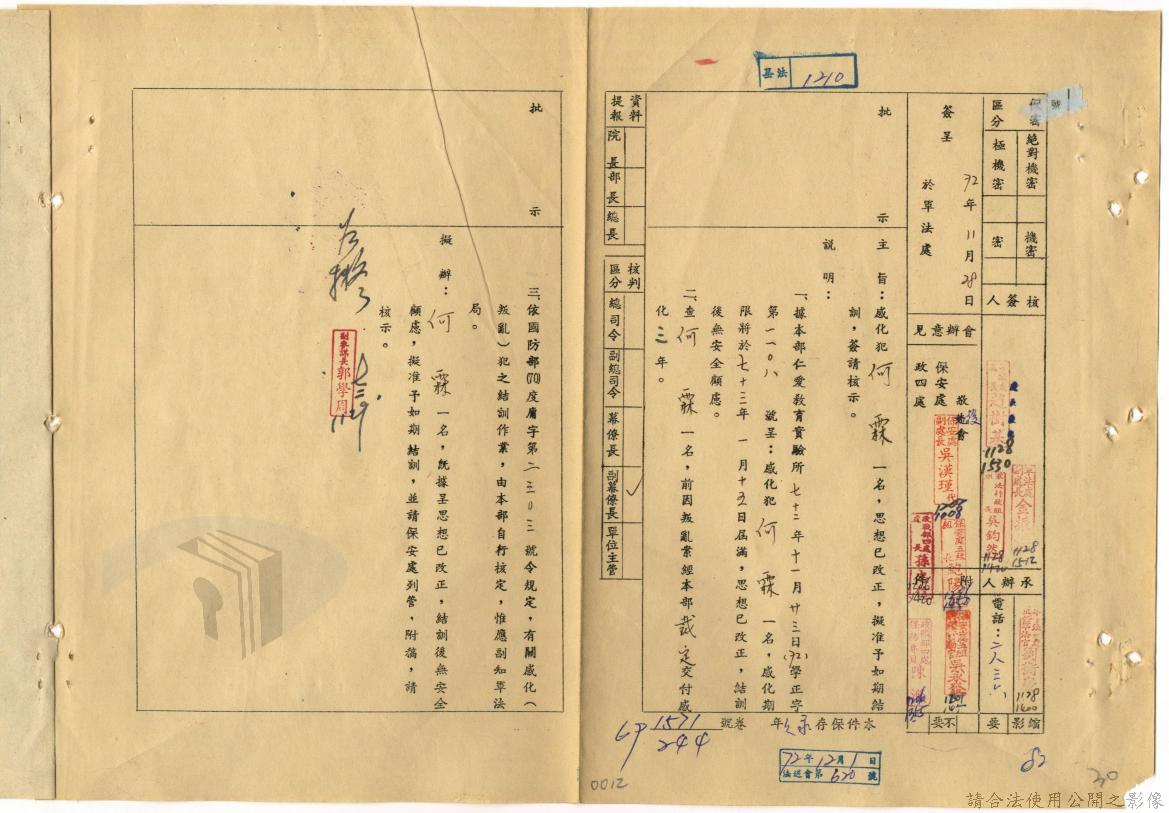 法
1210
保密
區分
絕對機密
極機密
機密
密
核簽人
承辦人
電話：二八三六
縮影
要
不要
會辦意見
敬會
保安處
政四處
附件
簽呈
72年11月28日
於軍法處
批
示
主旨：感化犯何霖一名，思想已改正，擬准予如期結
訓，簽請核示。
說明：
一、據本部仁愛教育實驗所七十二年十一月廿三日(72)學正字
第一一〇八號呈：感化犯何霖一名，感化期
限將於七十三年一月十五日屆滿，思想已改正，結訓
後無安全顧慮。
二、查何霖一名，前因叛亂案經本部裁定交付感
化三年。
資料
提報
院長
部長
總長
核判
區分
總司令
副總司令
幕僚長
副幕僚長
✓
單位主管
本件保存
年
卷
號
1571
244
72年12月1日
法巡會第620號
吳漢瑾代
1128
1530
吳鈞然
1128
1512
1128
1600
批
示
三、依國防部(70)度庸字第二三〇三號令規定，有關感化（
叛亂）犯之結訓作業，由本部自行核定，惟應副知軍法
局。
擬辦：何霖一名，既據呈思想已改正，結訓後無安全
顧慮，擬准予如期結訓，並請保安處列管，附稿，請
核示。
副參謀長郭學周
1129
0012
82
30
請合法使用公開之影像